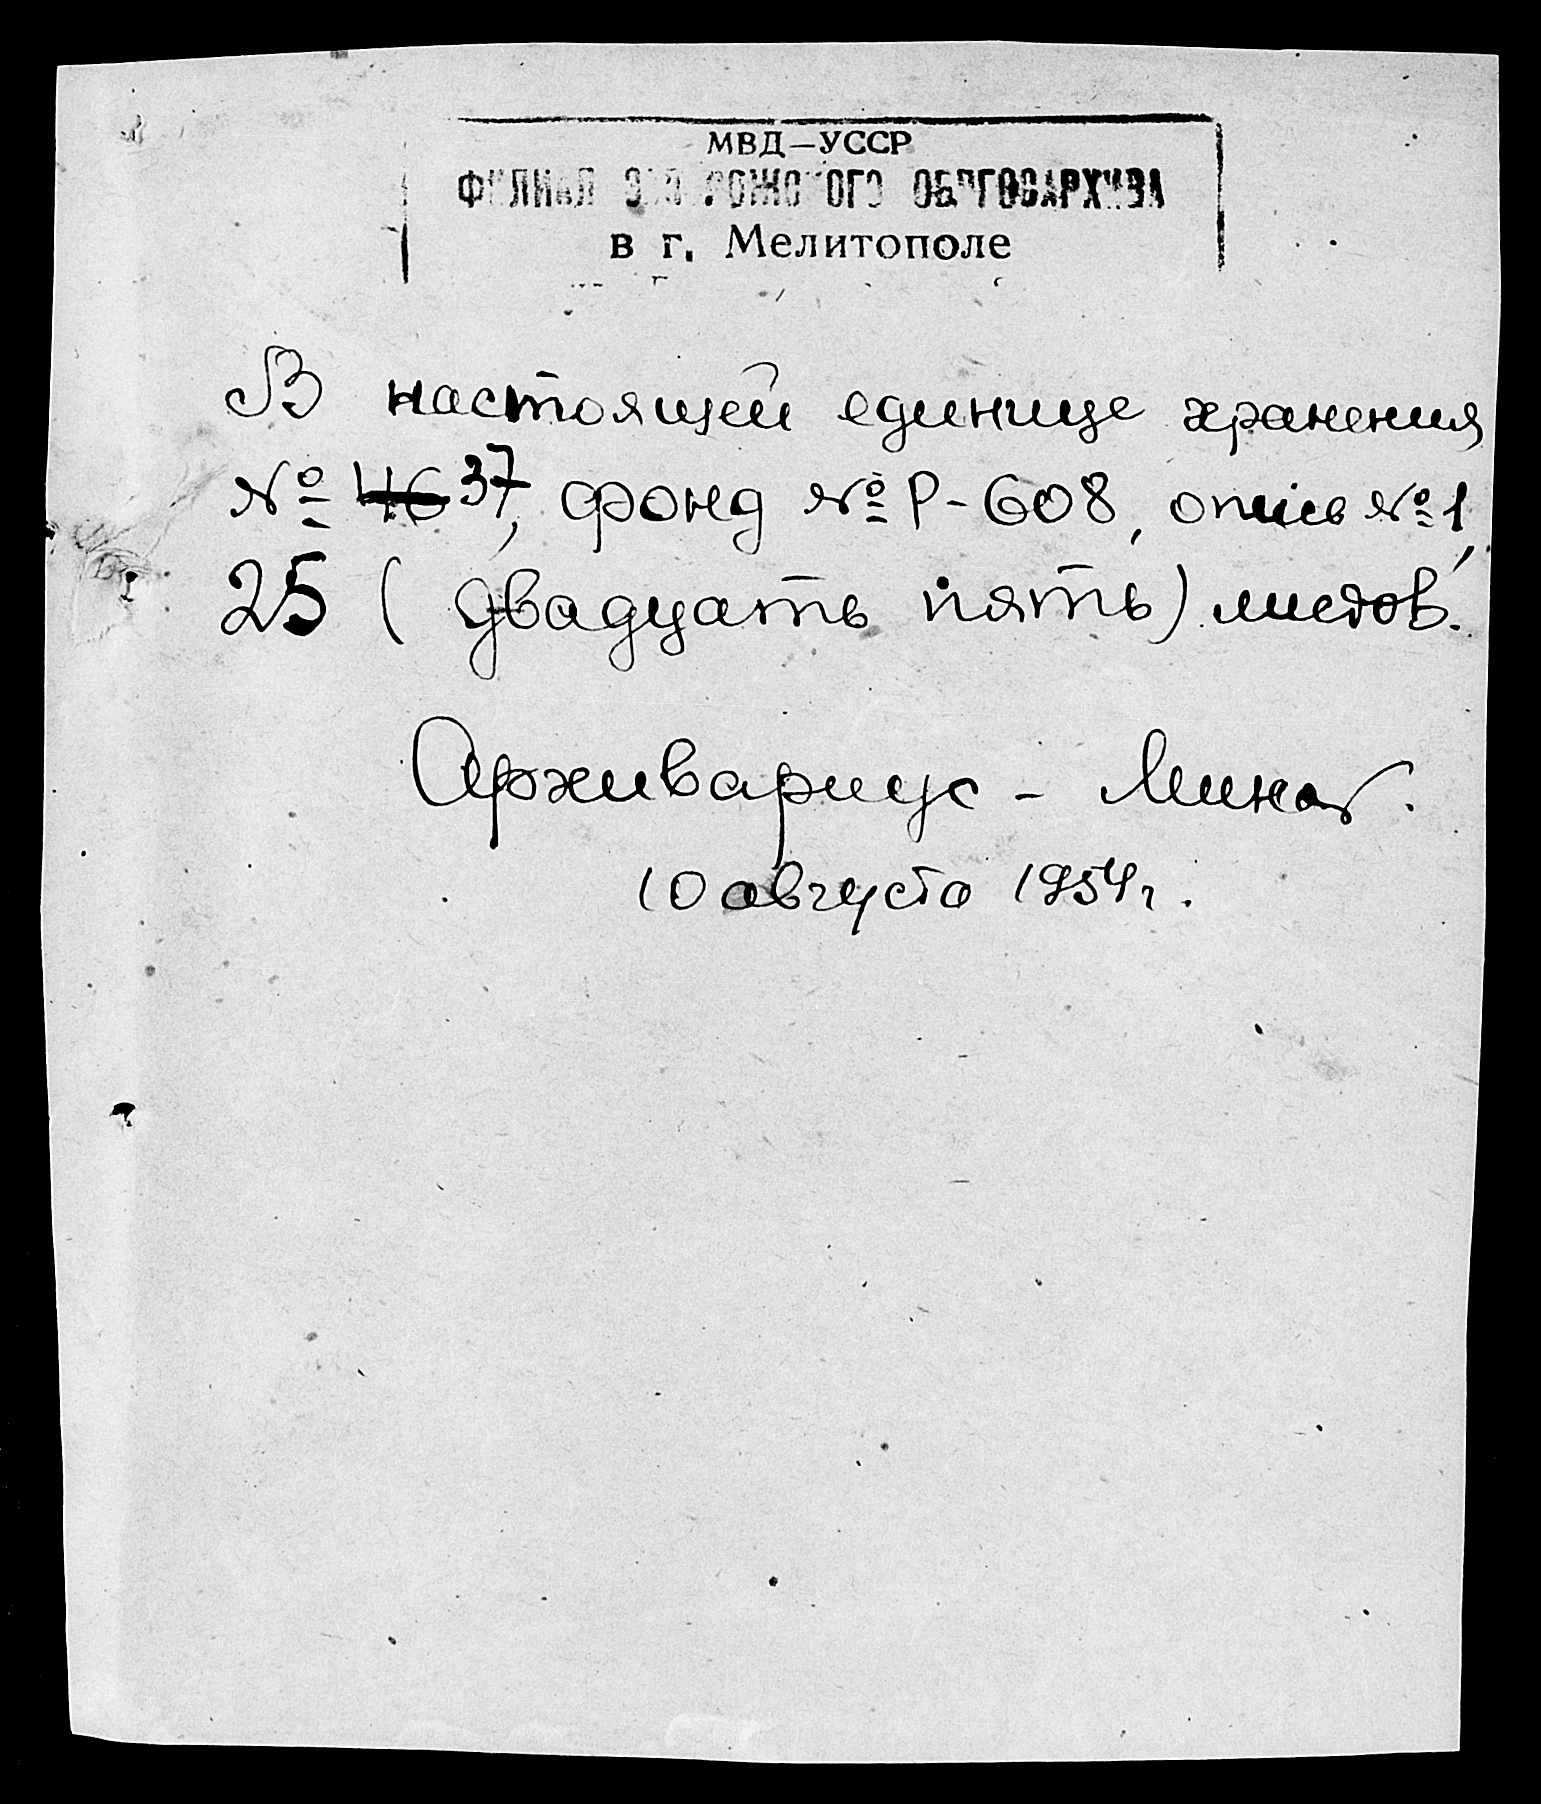 МВД—УССР
ФИЛИАЛ ЗАПОРОЖСКОГО ОБЛГОСАРХИВА
в г. Мелитополе
В настоящей единице хранения
№ 46 37, фонд № Р-608, опись № 1,
25 (двадцать пять) листов.
Архивариус -
10 августа 1954 г.